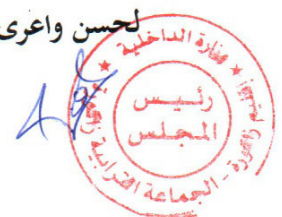 لحسن واعرى
وزارة الداخلية
رئيس
المجلس
الجماعة الترابية